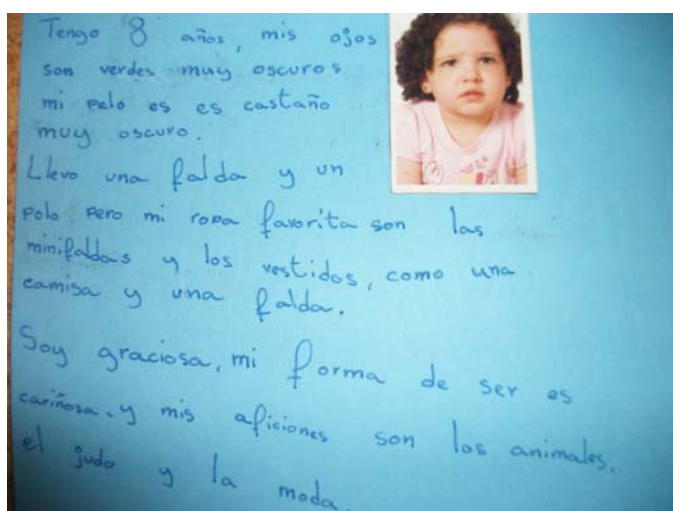 Tengo 8 años, mis ojos
son verdes muy oscuros
mi pelo es es castaño
muy oscuro.
Llevo una falda y un
polo pero mi ropa favorita son las
minifaldas y los vestidos, como una
camisa y una falda.
Soy graciosa, mi forma de ser es
cariñosa. y mis aficiones son los animales,
el judo y la moda.